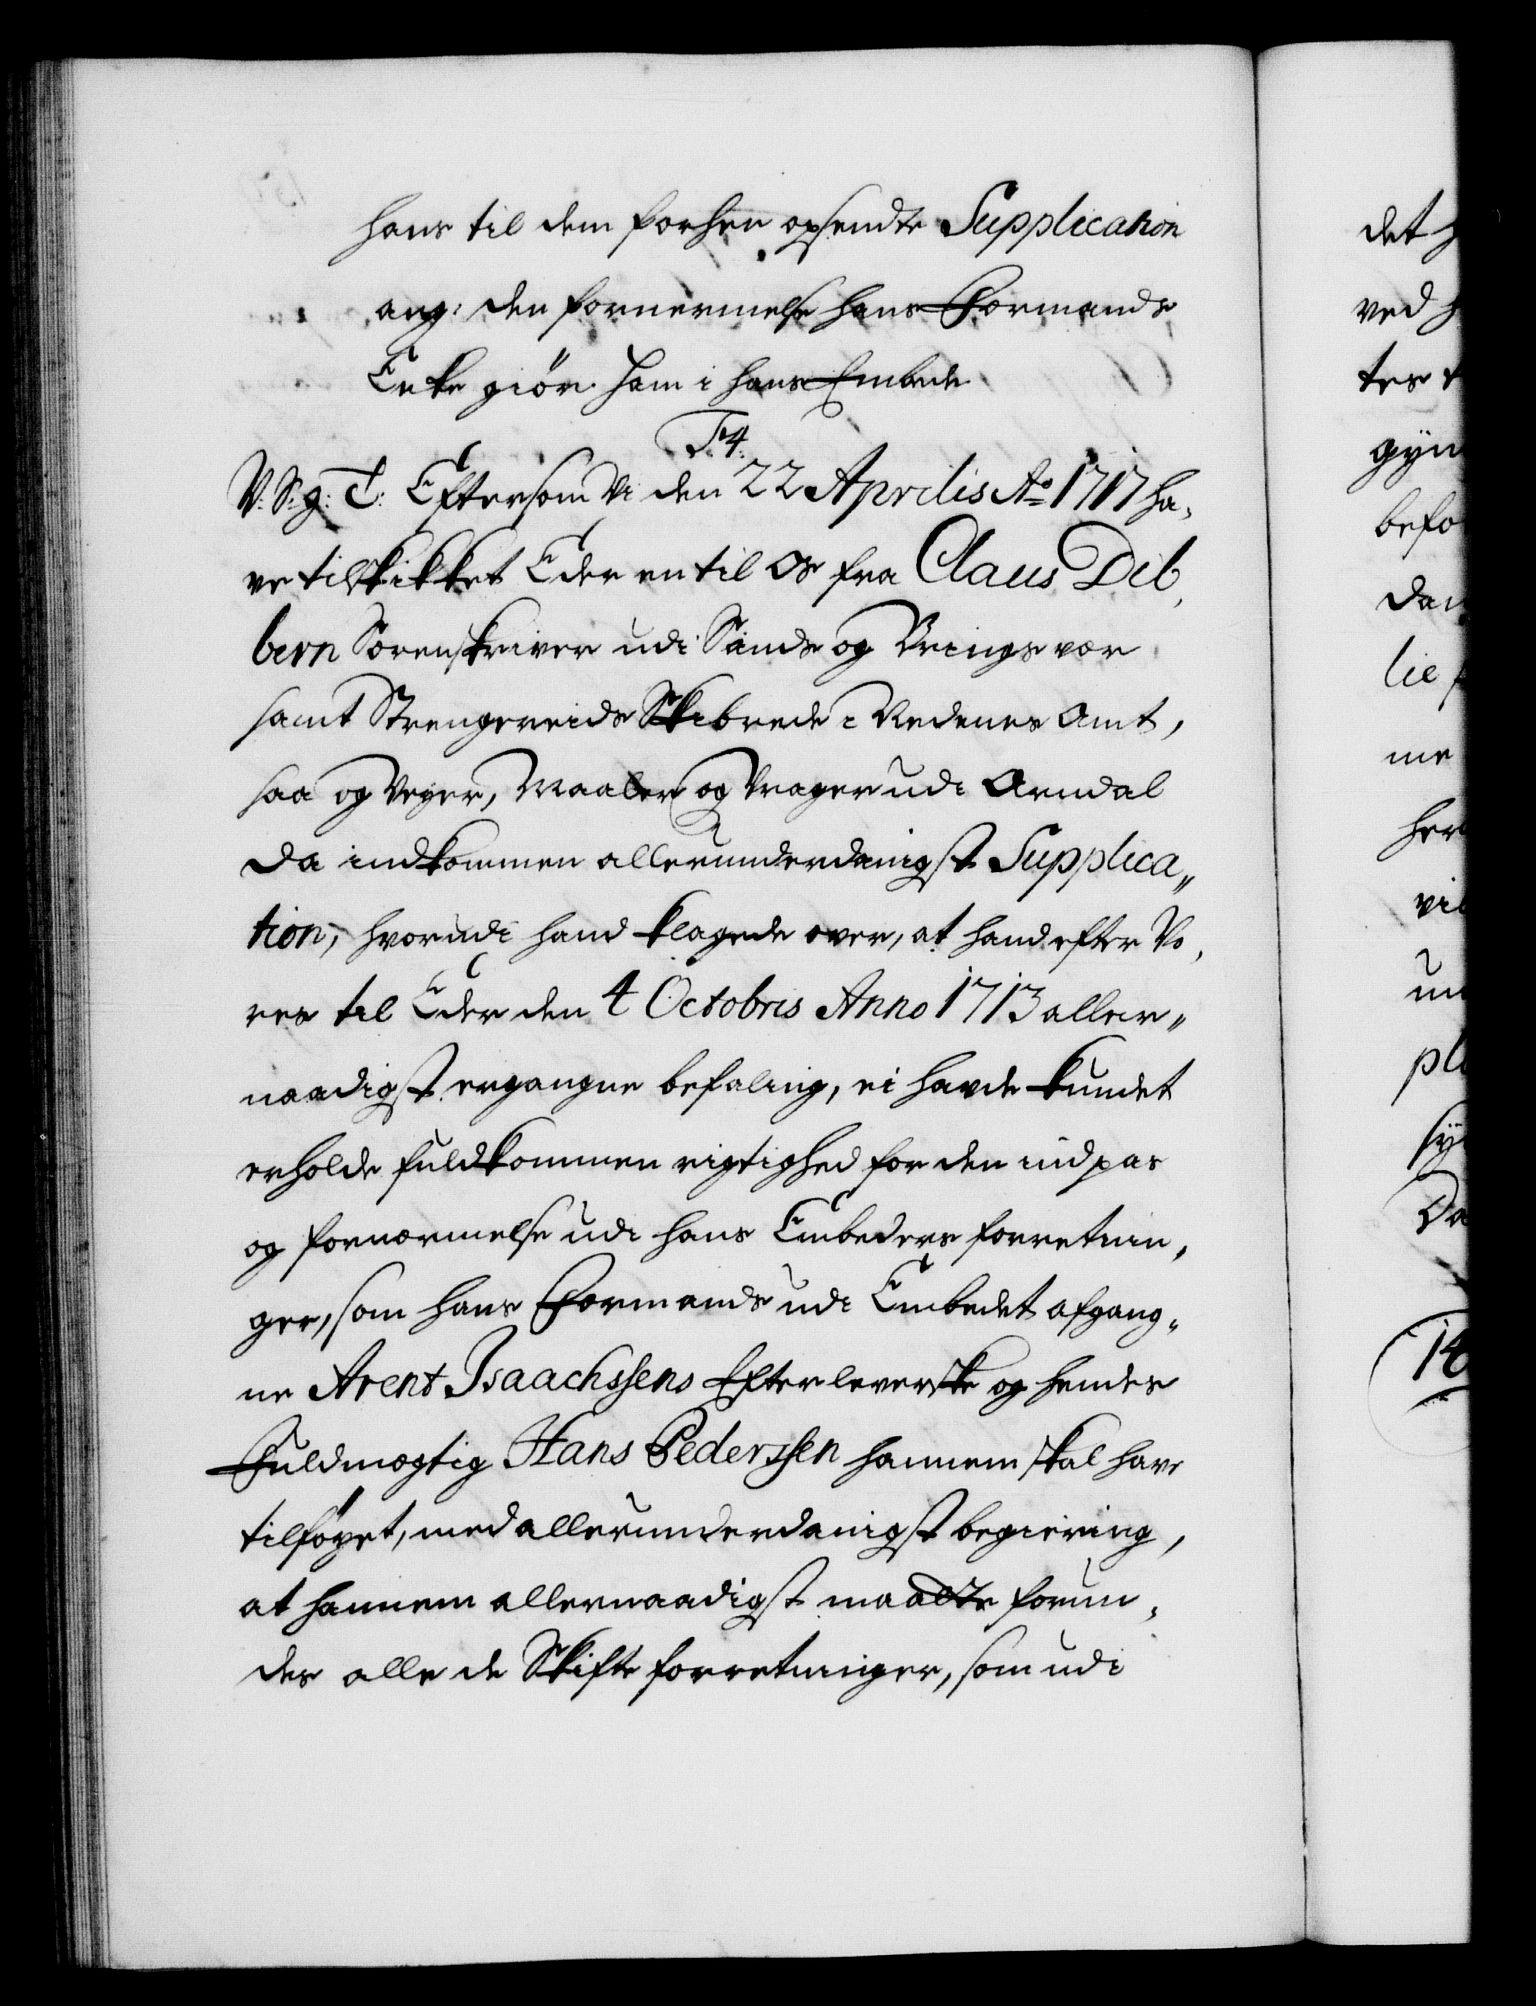 hans til dem forhen opsendte Supplication
ang: den fornermelse hans Formands
Enke giør ham i hans Embede
F4.
V. S. g: T: Eftersom Vi den 22 Aprilis Ao 1717 ha,
ve tilskikket Eder en til Os fra Claus Dib,
bern Sorenskriver udi Sands og Brings vær
samt Strengereids Skibrede i Nedenes Amt,
saa og Veyer, Maaler og Vrager udi Arndal
da indkommen allerunderdanigst Supplica„
tion, hvorudi hand klagede over, at hand efter Vo,
res til Eder den 4 Octobris Anno 1713 aller„
naadigst ergangne befaling, ei havde kundet
erholde fuldkommen rigtighed for den indpas
og fornærmelse udi hans Embeders forretnin,
ger, som hans Formands udi Embedet afgang„
ne Arent Isaachssens Efterleverske og hendes
Fuldmægtig Hans Pederssen hannem skal have
tilføyet, med allerunderdanigst begiering,
at hannem allernaadigst maatte forun,
des alle de Skifte forretninger, som udi
det
ved
tes
gyn
befo
dan
lie
me
her
vil
un
pli
sy
Da
14